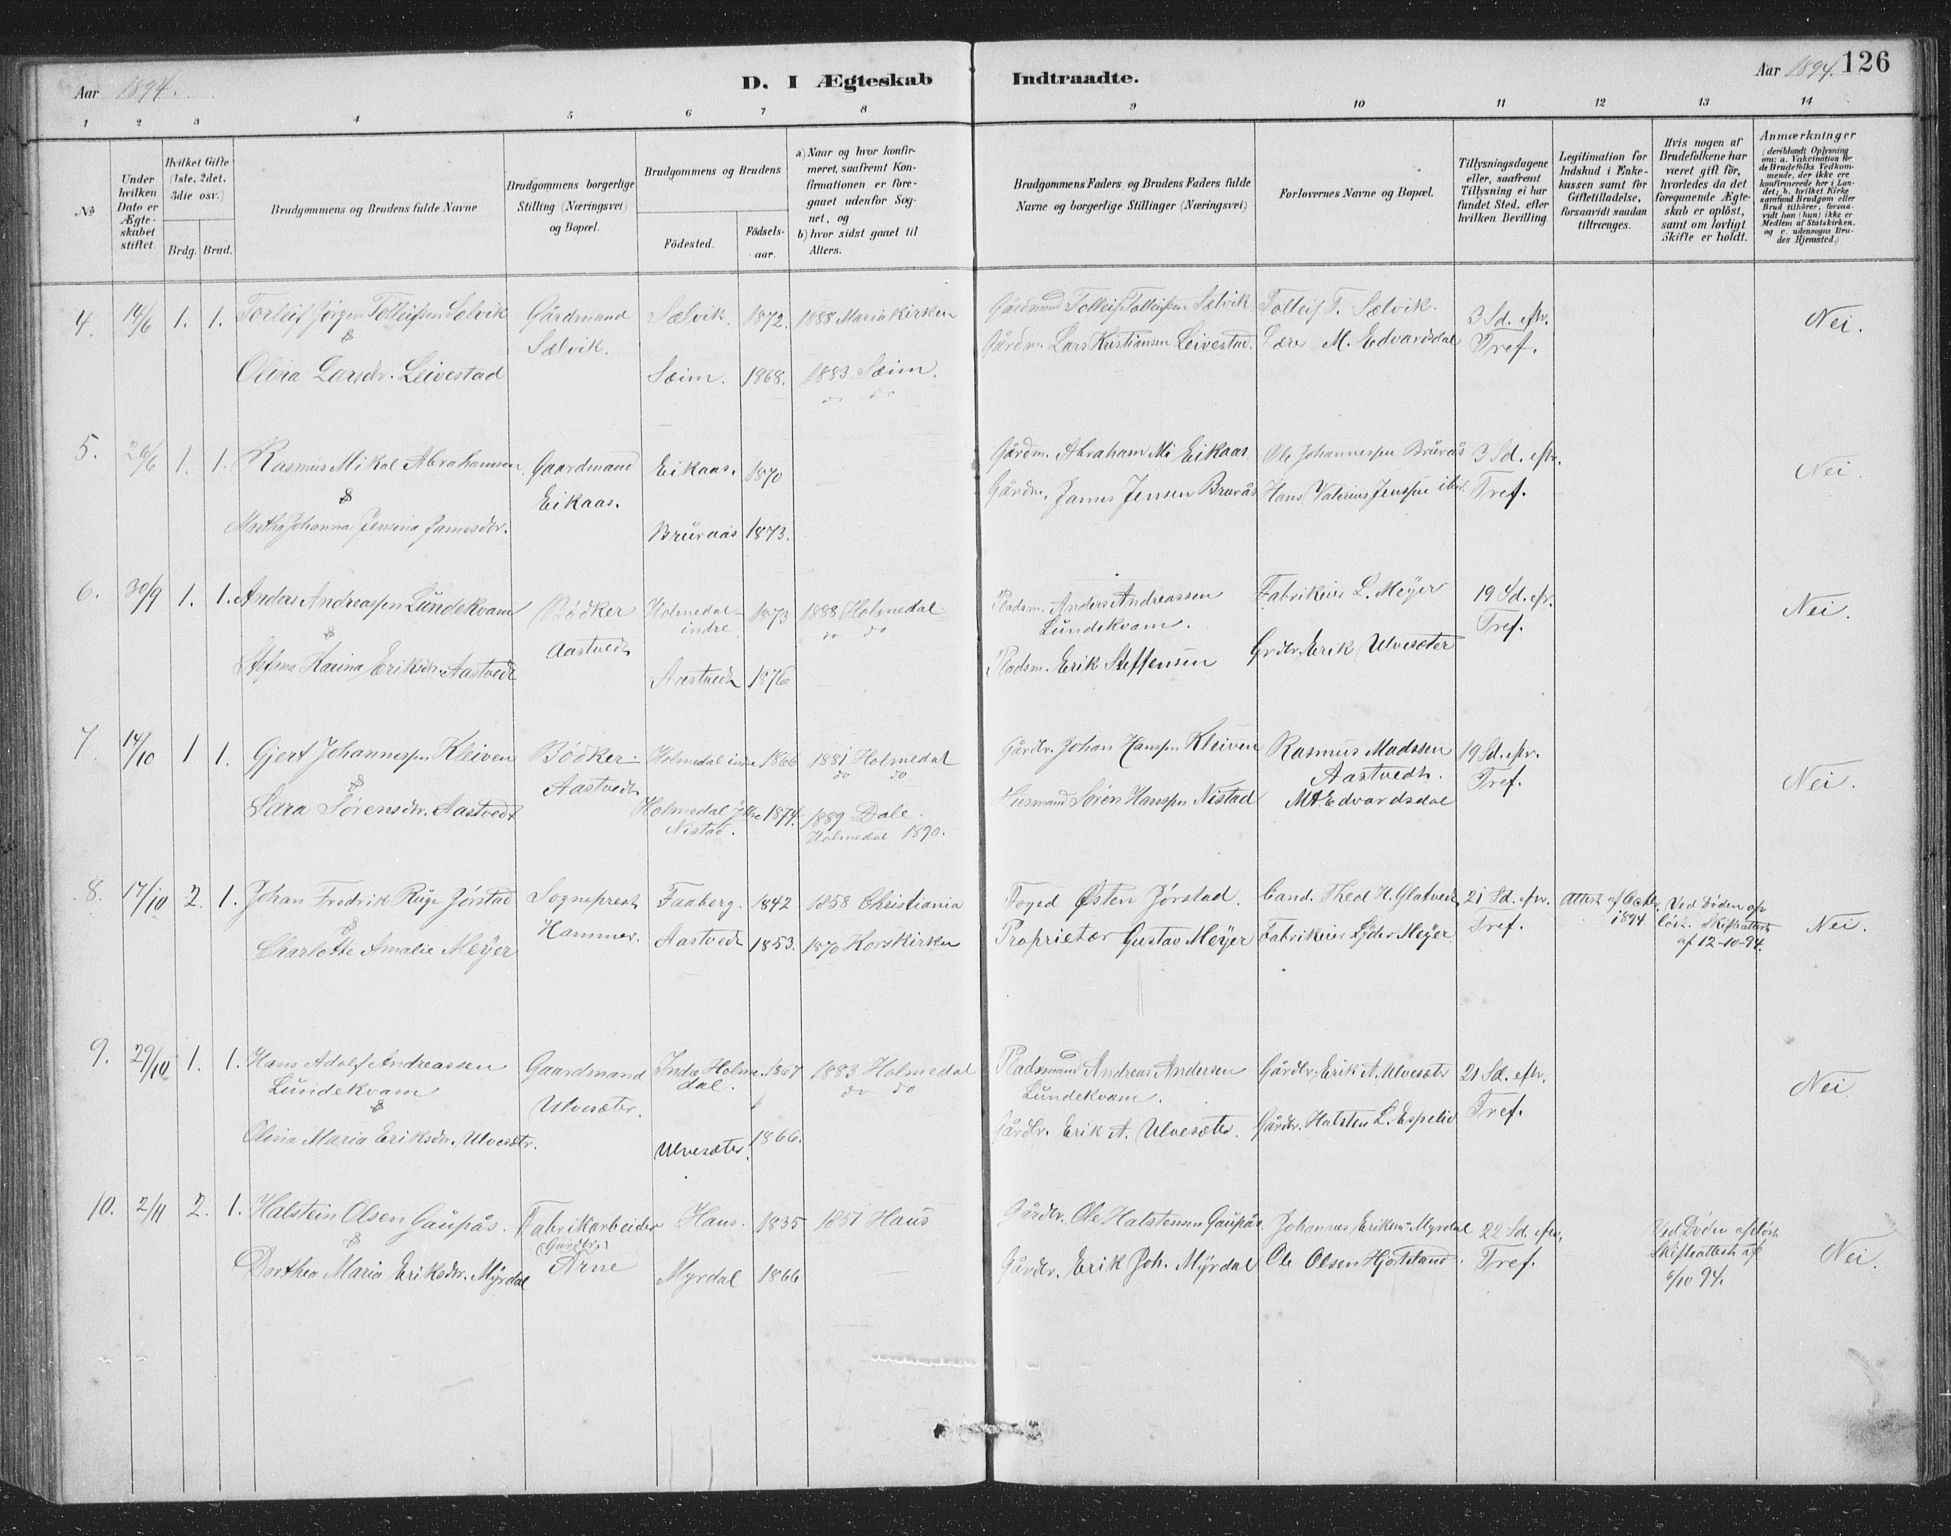 Aar 1894.
D. I Ægteskab Indtraadte.
Aar 1894. 126
1 2 3 4 5 6 7 8 9 10 11 12 13 14
No
Under hvilken Dato er Ægteskabet stiftet.
Hvilket Gifte (1ste, 2det, 3die osv.)
Brdg. Brud.
Brudgommens og Brudens fulde Navne
Brudgommens borgerlige Stilling (Næringsvei) og Bopæl.
Brudgommens og Brudens
Födested.
Födselsaar.
a) Naar og hvor konfirmeret, saafremt Konfirmationen er foregaaet udenfor Sognet, og
b) hvor sidst gaaet til Alters.
Brudgommens Faders og Brudens Faders fulde Navne og borgerlige Stillinger (Næringsvei)
Forlovernes Navne og Bopæl.
Tillysningsdagene eller, saafremt Tillysning ei har fundet Sted, efter hvilken Bevilling.
Legitimation for Indskud i Enkekassen samt for Giftetilladelse, forsaavidt saadan tiltrænges.
Hvis nogen af Brudefolkene har været gift för, hvorledes da det foregaaende Ægteskab er oplöst, samt om lovligt Skifte er holdt.
Anmærkninger (deriblandt Oplysning om: a. Vakcination for de Brudefolks Vedkommende, der ikke ere konfirmerede her i Landet; b. hvilket Kirkesamfund Brudgom eller Brud tilhörer, forsaavidt han (hun) ikke er Medlem af Statskirken, og c. udensogns Brudes Hjemsted.)
4. 14/6 1. 1. Torleif Jörgen Tolleifsen Solvik Gårdmand Sælvik. 1872. 1888 Mariakirken Gårdmand Tolleif Tolleifsen Sælvik Tolleif T. Sælvik. 3 Sd. eftr. Nei.
& Sælvik. Gårdm. Lars Kristiansen Leivestad. Lærer M. Edvardsdal Tref.
Olivia Larsdr. Leivestad Sæim. 1868. 1883 Sæim.
do do
5. 26/6 1. 1. Rasmus Mikal Abrahamsen Gaardmand Eikaas. 1870 Gårdm. Abraham Mi Eikaas Ole Johannessen Brurås 3 Sd. eftr. Nei.
& Eikaas. Gårdm. James Jensen Brurås Hans Valerius Jenssen ibid. Tref.
Martha Johanna Jensina Jamesdr. Bruraas 1873.
6. 30/9 1. 1. Anders Andreassen Lundekvam Bödker Holmedal indre 1873 1888 Holmedal. Pladsm. Anders Andreassen Fabrikeier L. Meyer 19 Sd. eftr. Nei.
& Aastvedt do do Lundekvam. Tref.
Karina Eriksdr. Aastvedt Aastvedt 1876 Pladsm. Erik Steffensen Grdbr. Erik Ulvesæter
7 14/10 1 1. Gjert Johannessen Kleiven Bödker Holmedal indre 1866 1881 Holmedal Gårdbr. Johan Hanssen Kleiven Rasmus Madssen 19 Sd. eftr. Nei.
& Aastvedt do do Aastvedt. Tref.
Sara Sørensdr. Aastvedt Holmedal Ytre 1874. 1889 Dale Husmand Sören Hanssen Nistad M. Edvardsdal
Nistad. Holmedal 1890.
8. 17/10 2. 1. Johan Fredrik Ruge Jörstad Sogneprest Faaberg. 1842 1858 Christiania Foged Østen Jörstad. Cand. Theol H. Glatvedt 21 Sd. eftr. Attest af Octbr. 1894 Ved Döden opløst. Skifteattest af 12-10-94. Nei.
& Hammer. Tref.
Charlotte Amalie Meyer Aastvedt 1853. 1870 Korskirken Proprietær Gustav Meyer Fabrikeier Lyder Meyer
9. 29/10 1. 1. Hans Adolf Andreassen Gaardmand Indre Holmedal. 1867 1883 Holmedal Pladsmand Andreas Andersen Gårdbr. Erik A. Ulvesæter 21 Sd. eftr. Nei
Lundekvam Ulvesæter. do do Lundekvam. Tref.
&
Olina Maria Eriksdr. Ulvesætr. Ulvesæter. 1866. Gårdbr. Erik A. Ulvesæter. Gårdbr. Halsten L. Espelid
10. 2/11 2. 1. Halstein Olsen Gaupås. Fabrikarbeider Haus. 1835 1851 Haus Gårdbr. Ole Halstensen Gaupås Johannes Eriksen Myrdal 22 Sd. eftr. Ved Döden opløst. Skifteattest af 6/10 94. Nei.
& (Gardbr.)
Dorthea Maria Eriksdr. Myrdal Arne Myrdal 1866 Gårdbr. Erik Joh. Myrdal Ole Olsen Hjortland. Tref.